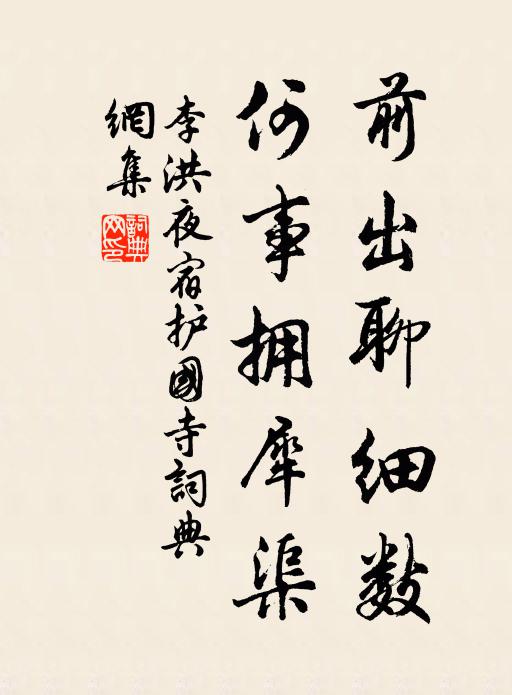 前出聊细数
何事拥犀渠
李洪夜宿护國寺詞典
網集
詞典
网印